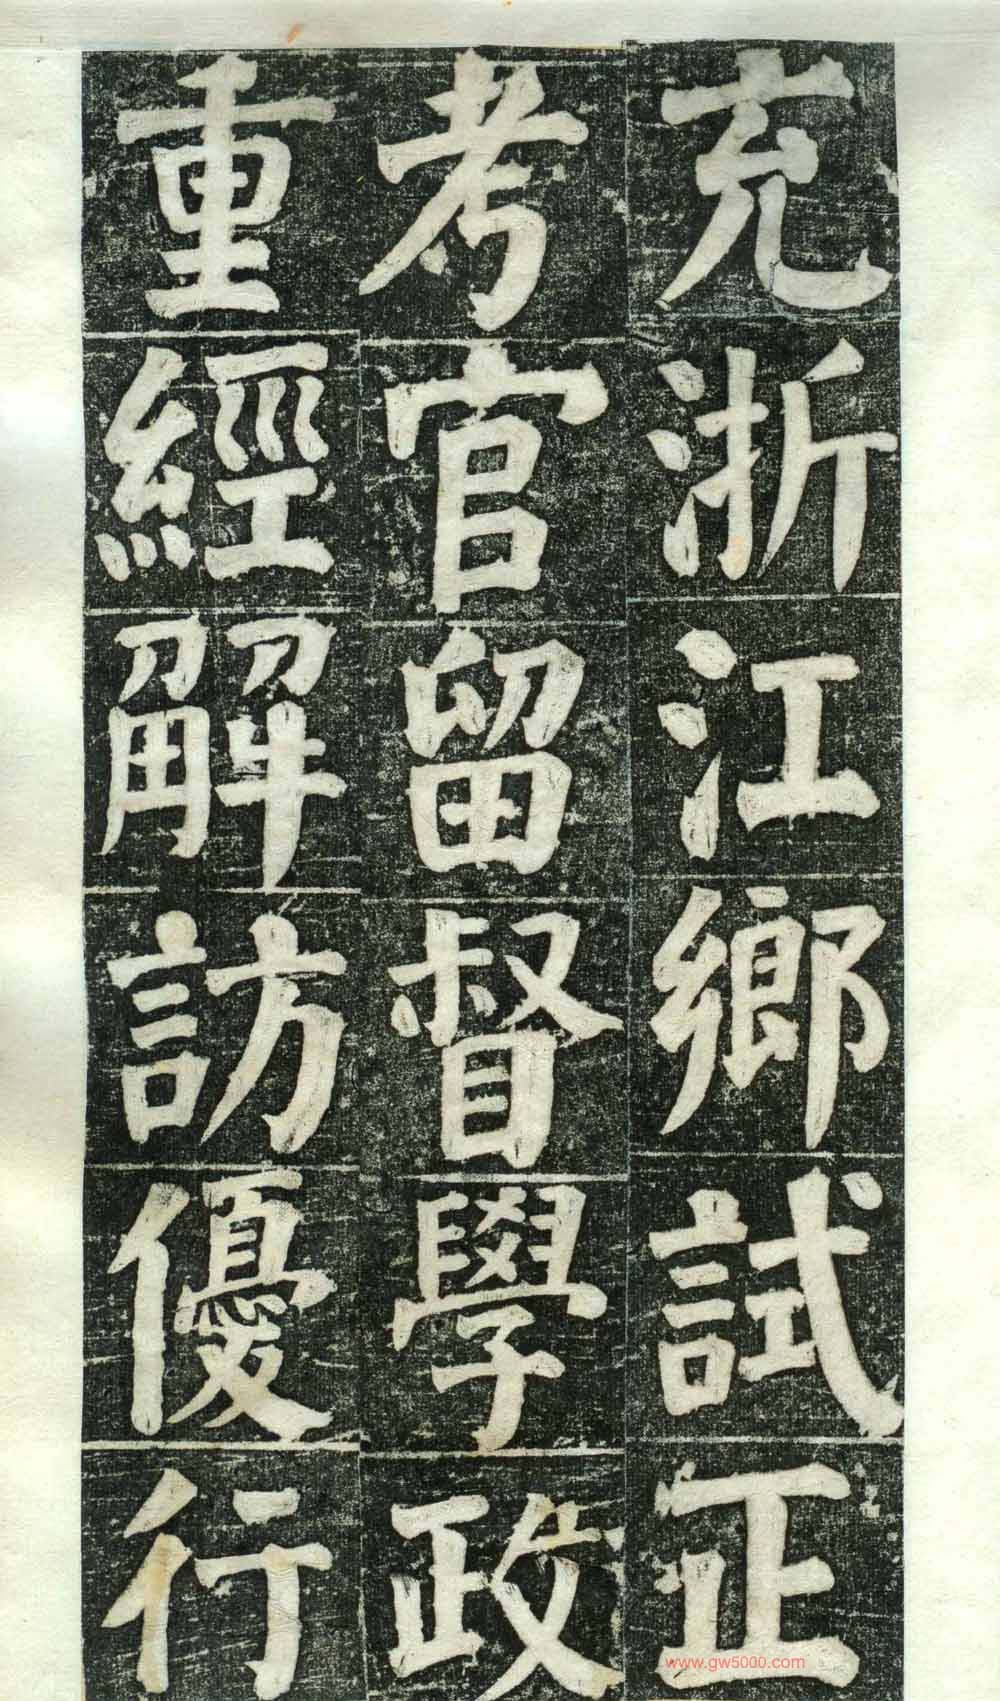 充浙江鄉試正
考官留督學政
重經解訪優行
www.gw5000.com